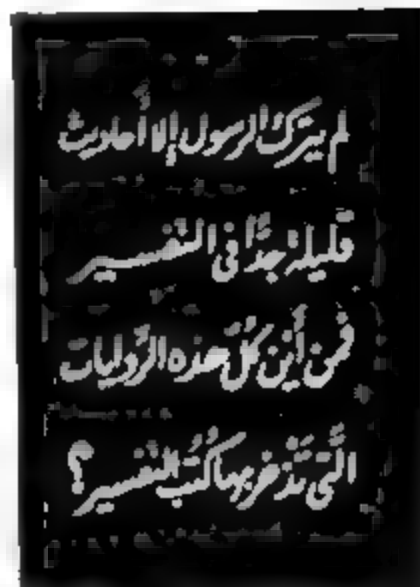 لم يترك الرسول إلا أحاديث
قليلة جدًّا في التفسير
فمن أين كلُّ هذه الرّوايات
الَّتى تَذخر بها كُتُب التفسير؟